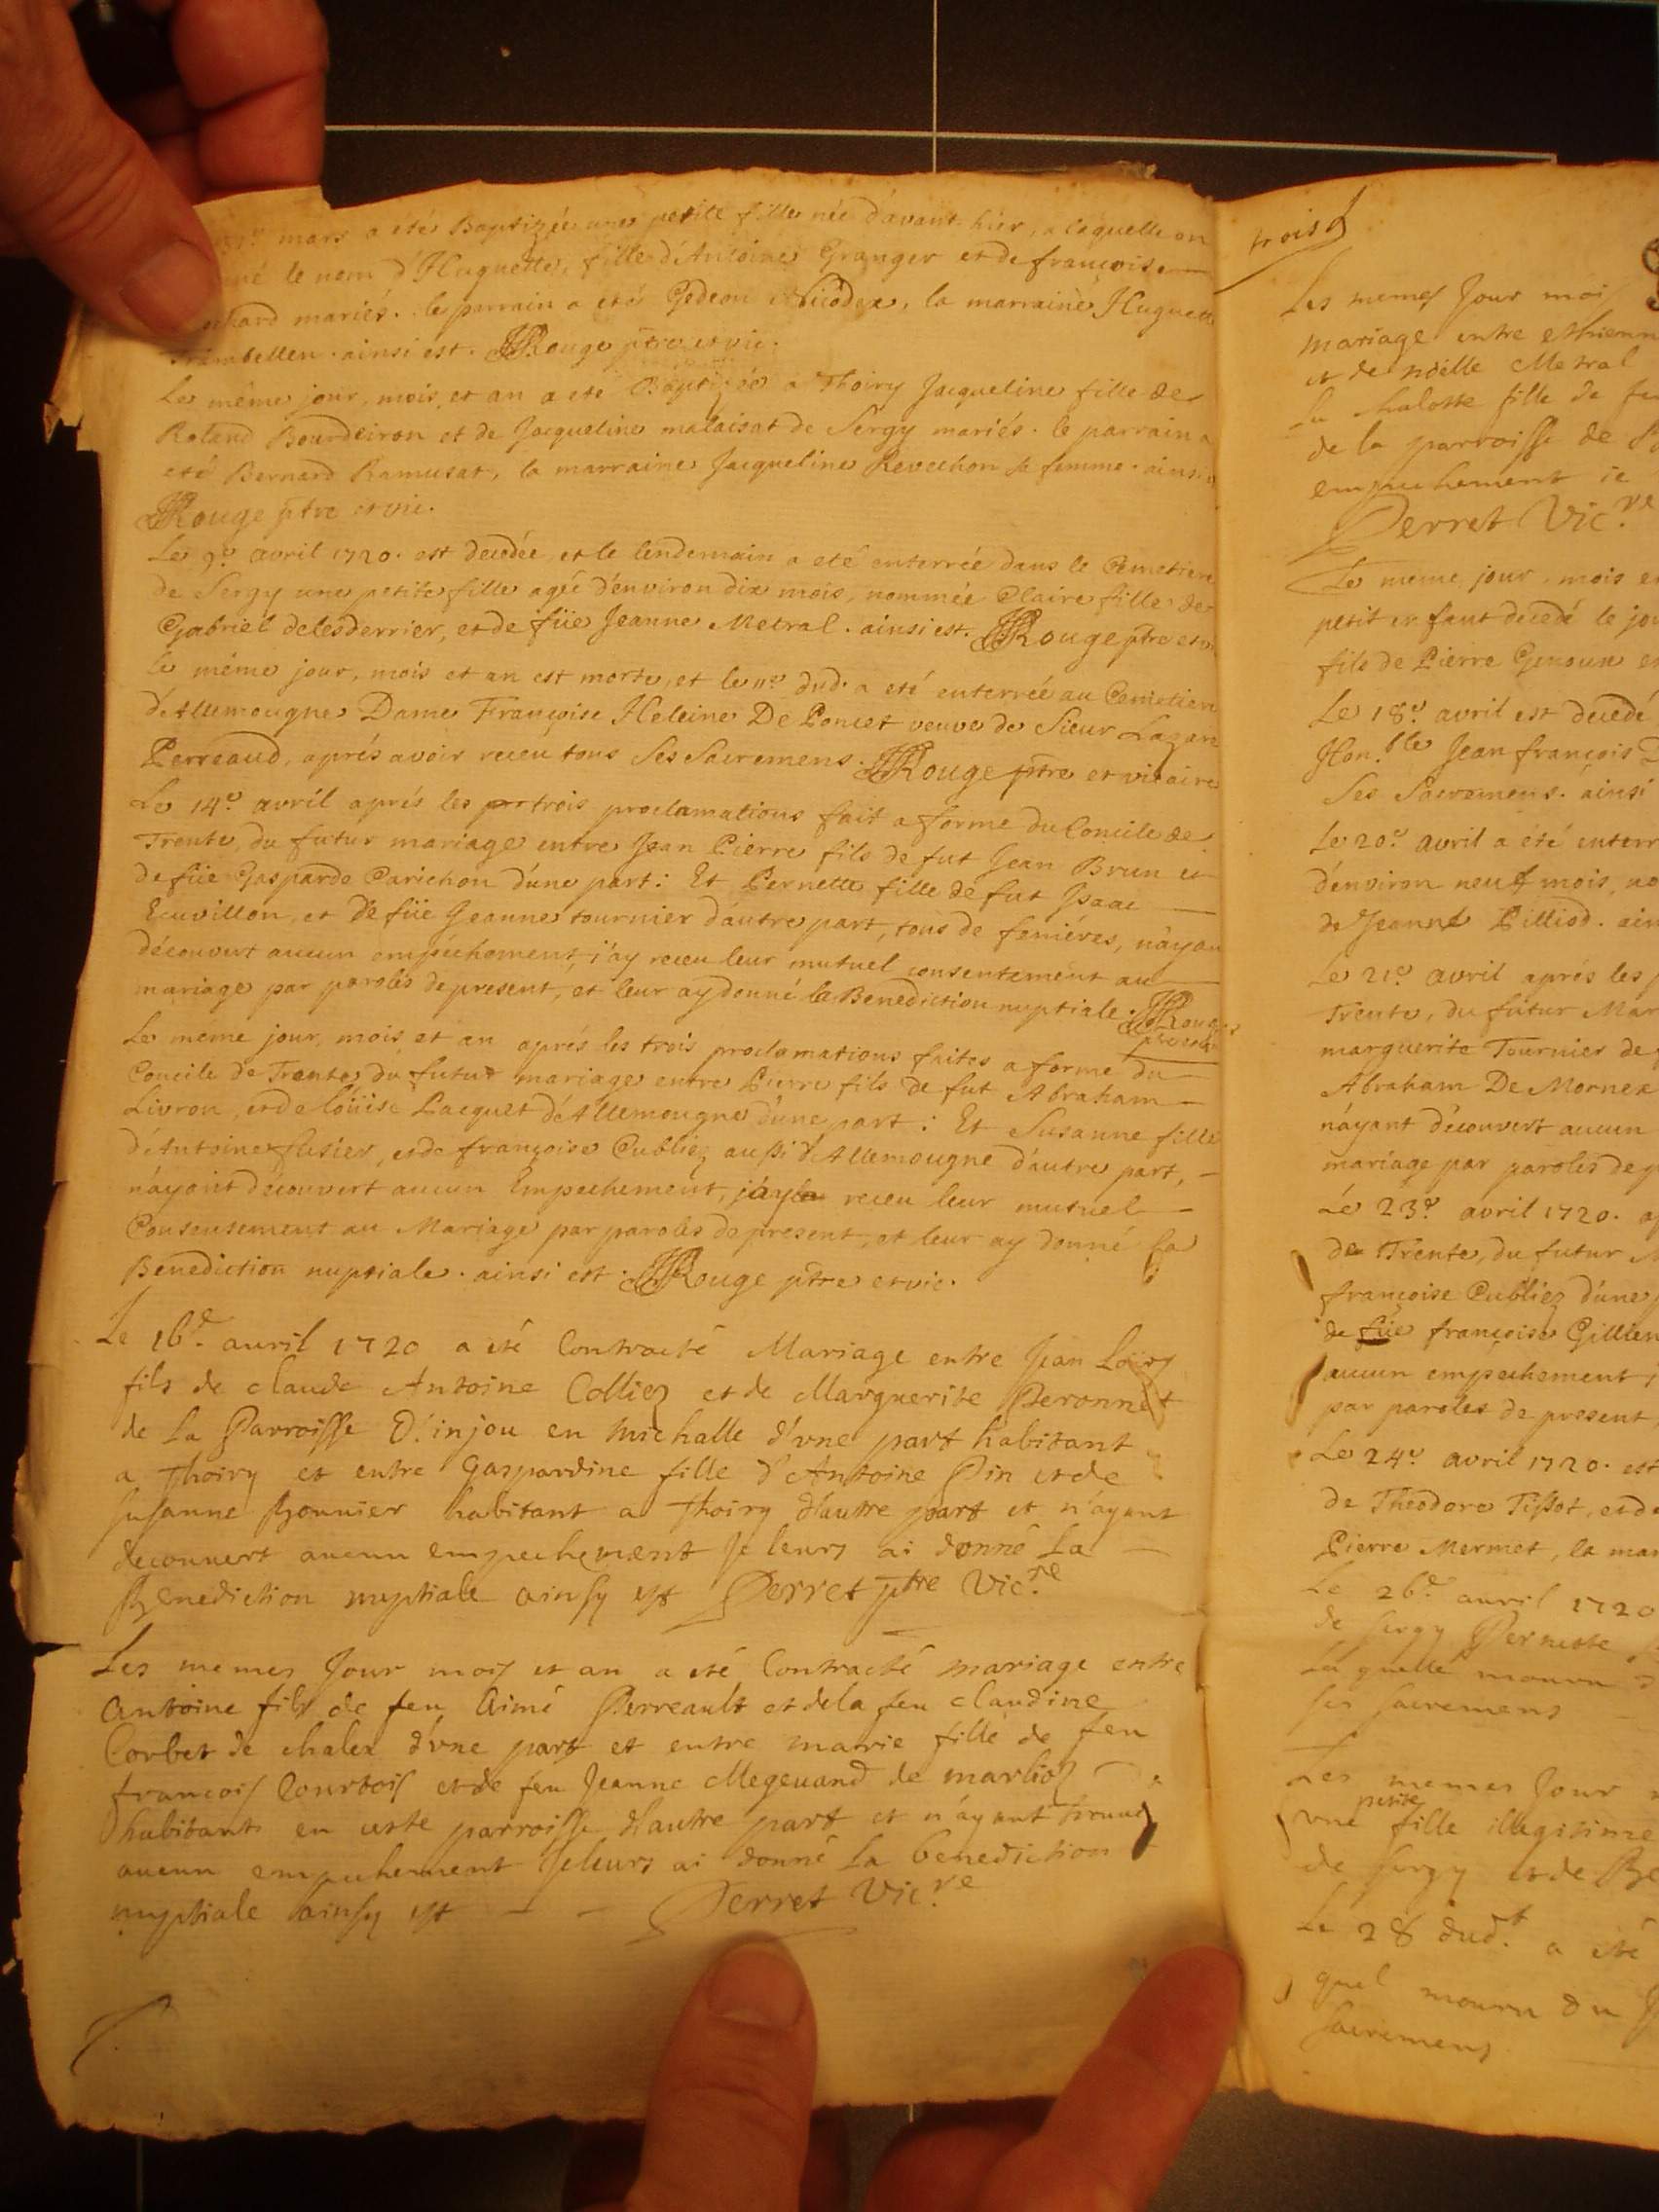 mars a eté Baptizée une petite fille née d'avant hier, a laquelle on
le nom d'Huguette, fille d'Antoine Granger et de françoise
mariés. le parrain a eté Gedeon Nicodex, la marraine Huguette
ainsi est. JRouge ptre et vic.
Le même jour, mois et an a eté Baptizée a Thoiry Jacqueline fille de
Roland Bourdeiron et de Jacqueline malaisat de Sergy mariés. le parrain a
eté Bernard Ramusat, la marraine Jacqueline Revechon sa femme. ainsi
JRouge ptre et vic.
Le 9.e avril 1720. est decedée, et le lendemain a eté enterrée dans le Cemetiere
de Sergy une petite fille agée d'environ dix mois, nommée Claire fille de
Gabriel delesderrier, et de füe Jeanne Metral. ainsi est. JRouge ptre et vic
Le même jour, mois et an est morte, et le 11.e dud. a eté enterrée au Cemetiere
d'Allemougne Dame Françoise Heleine De Poncet veuve de Sieur Lazare
Perreaud, aprés avoir receu tous Ses Sacremens. JRouge ptre et vicaire
Le 14.e avril aprés les trois proclamations fait a forme du Concile de
Trente, du futur mariage entre Jean Pierre fils de fut Jean Brun et
de füe Gasparde Carichon d'une part: Et Pernette fille de fut Isaac
Ecuvillon, et de füe Jeanne tournier d'autre part, tous de feniéres, n'ayan
découvert aucun empechement, j'ay receu leur mutuel consentement au
mariage par paroles de present, et leur ay donné la Benediction nuptiale. JRouge
ptre et vic
Le meme jour, mois et an aprés les trois proclamations faites a forme du
Concile de Trente, du futur mariage entre Pierre fils de fut Abraham
Livron, et de loüise Lacquet d'Allemougne d'une part: Et Susanne fille
d'Antoine flusier, et de françoise Cubliez aussi d'Allemougne d'autre part,
n'ayant découvert aucun Empechement, j'ay receu leur mutuel
Consensement au Mariage par paroles de present, et leur ay donné la
Benediction nuptiale. ainsi est. JRouge ptre et vic.
Le 16.e auril 1720 a eté Contracté Mariage entre Jean Loüis
fils de claude Antoine Colliez et de Marguerite Peronnet
de la Parroisse D'injou en michalle d'vne part habitant
a Thoiry et entre Gaspardine fille d'Antoine Pin et de
Susanne Bonnier habitant a Thoiry d'autre part et n'ayant
decouuert aucun empechement Je leurs ai donné la
Benediction nuptiale ainsy est Perret ptre Vic.re
Les memes Jour mois et an a eté Contracté mariage entre
Antoine fils de feu Aimé Perreault et de la feu claudine
Corbet de chalex d'vne part et entre marie fille de feu
francois Courtois et de feu Jeanne Megeuand de marlioz
habitant en ceste parroisse d'autre part et n'ayant trouué
aucun empechement Je leurs ai donné la benediction
nuptiale ainsy est Perret Vic.re
trois
Les memes Jour mois
mariage entre
et de noëlle Metral
fille de feu
de la parroisse de
empechement ie
Perret Vic.re
Le meme jour, mois et
petit enfant decedé le jou
fils de Pierre Genoux et
Le 18.e avril est decedé
Hon.ble Jean françois
Ses Sacremens. ainsi
Le 20.e avril a été enterr
d'environ neuf mois, no
de Jeanne Pilliod. ain
Le 21.e avril aprés les p
Trente, du futur Mar
marguerite Tournier de
Abraham De Mornex
n'ayant découvert aucun
mariage par paroles de p
Le 23.e avril 1720. ap
de Trente, du futur M
françoise Cubliez d'une p
de füe françoise Gillien
aucun empechement j
par paroles de present
Le 24.e avril 1720. est
de Theodore Tissot, et de
Pierre Mermet, la mar
Le 26.e auril 1720
de sergy Pernette
la quelle mouru d
ses sacremens
Les memes Jour
vne petite fille illegitime
de sergy et de Be
Le 28 dud.t a eté
quel mouru du J
sacremens